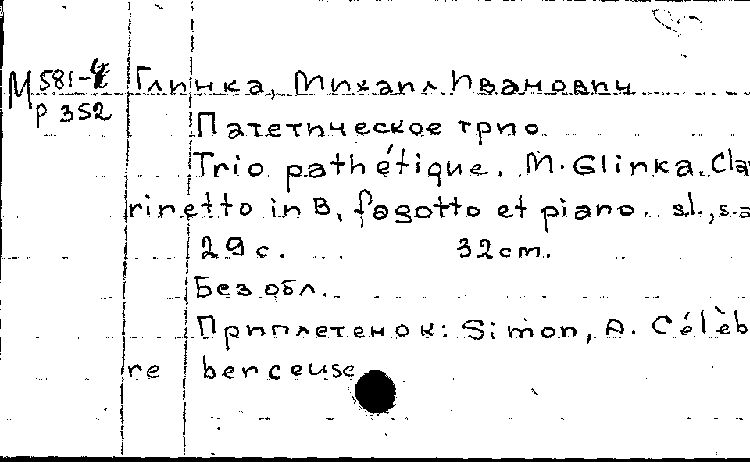 М 581-4 Глинка, Михаил Иванович
р 352
Патетическое трио
Trio pathétique. M. Glinka. Cla
rinetto in B, fagotto et piano. s.l., s.a
29 с. 32 cm.
Без обл.
Приплетенок: Simon, A. Célèb
re berceuse